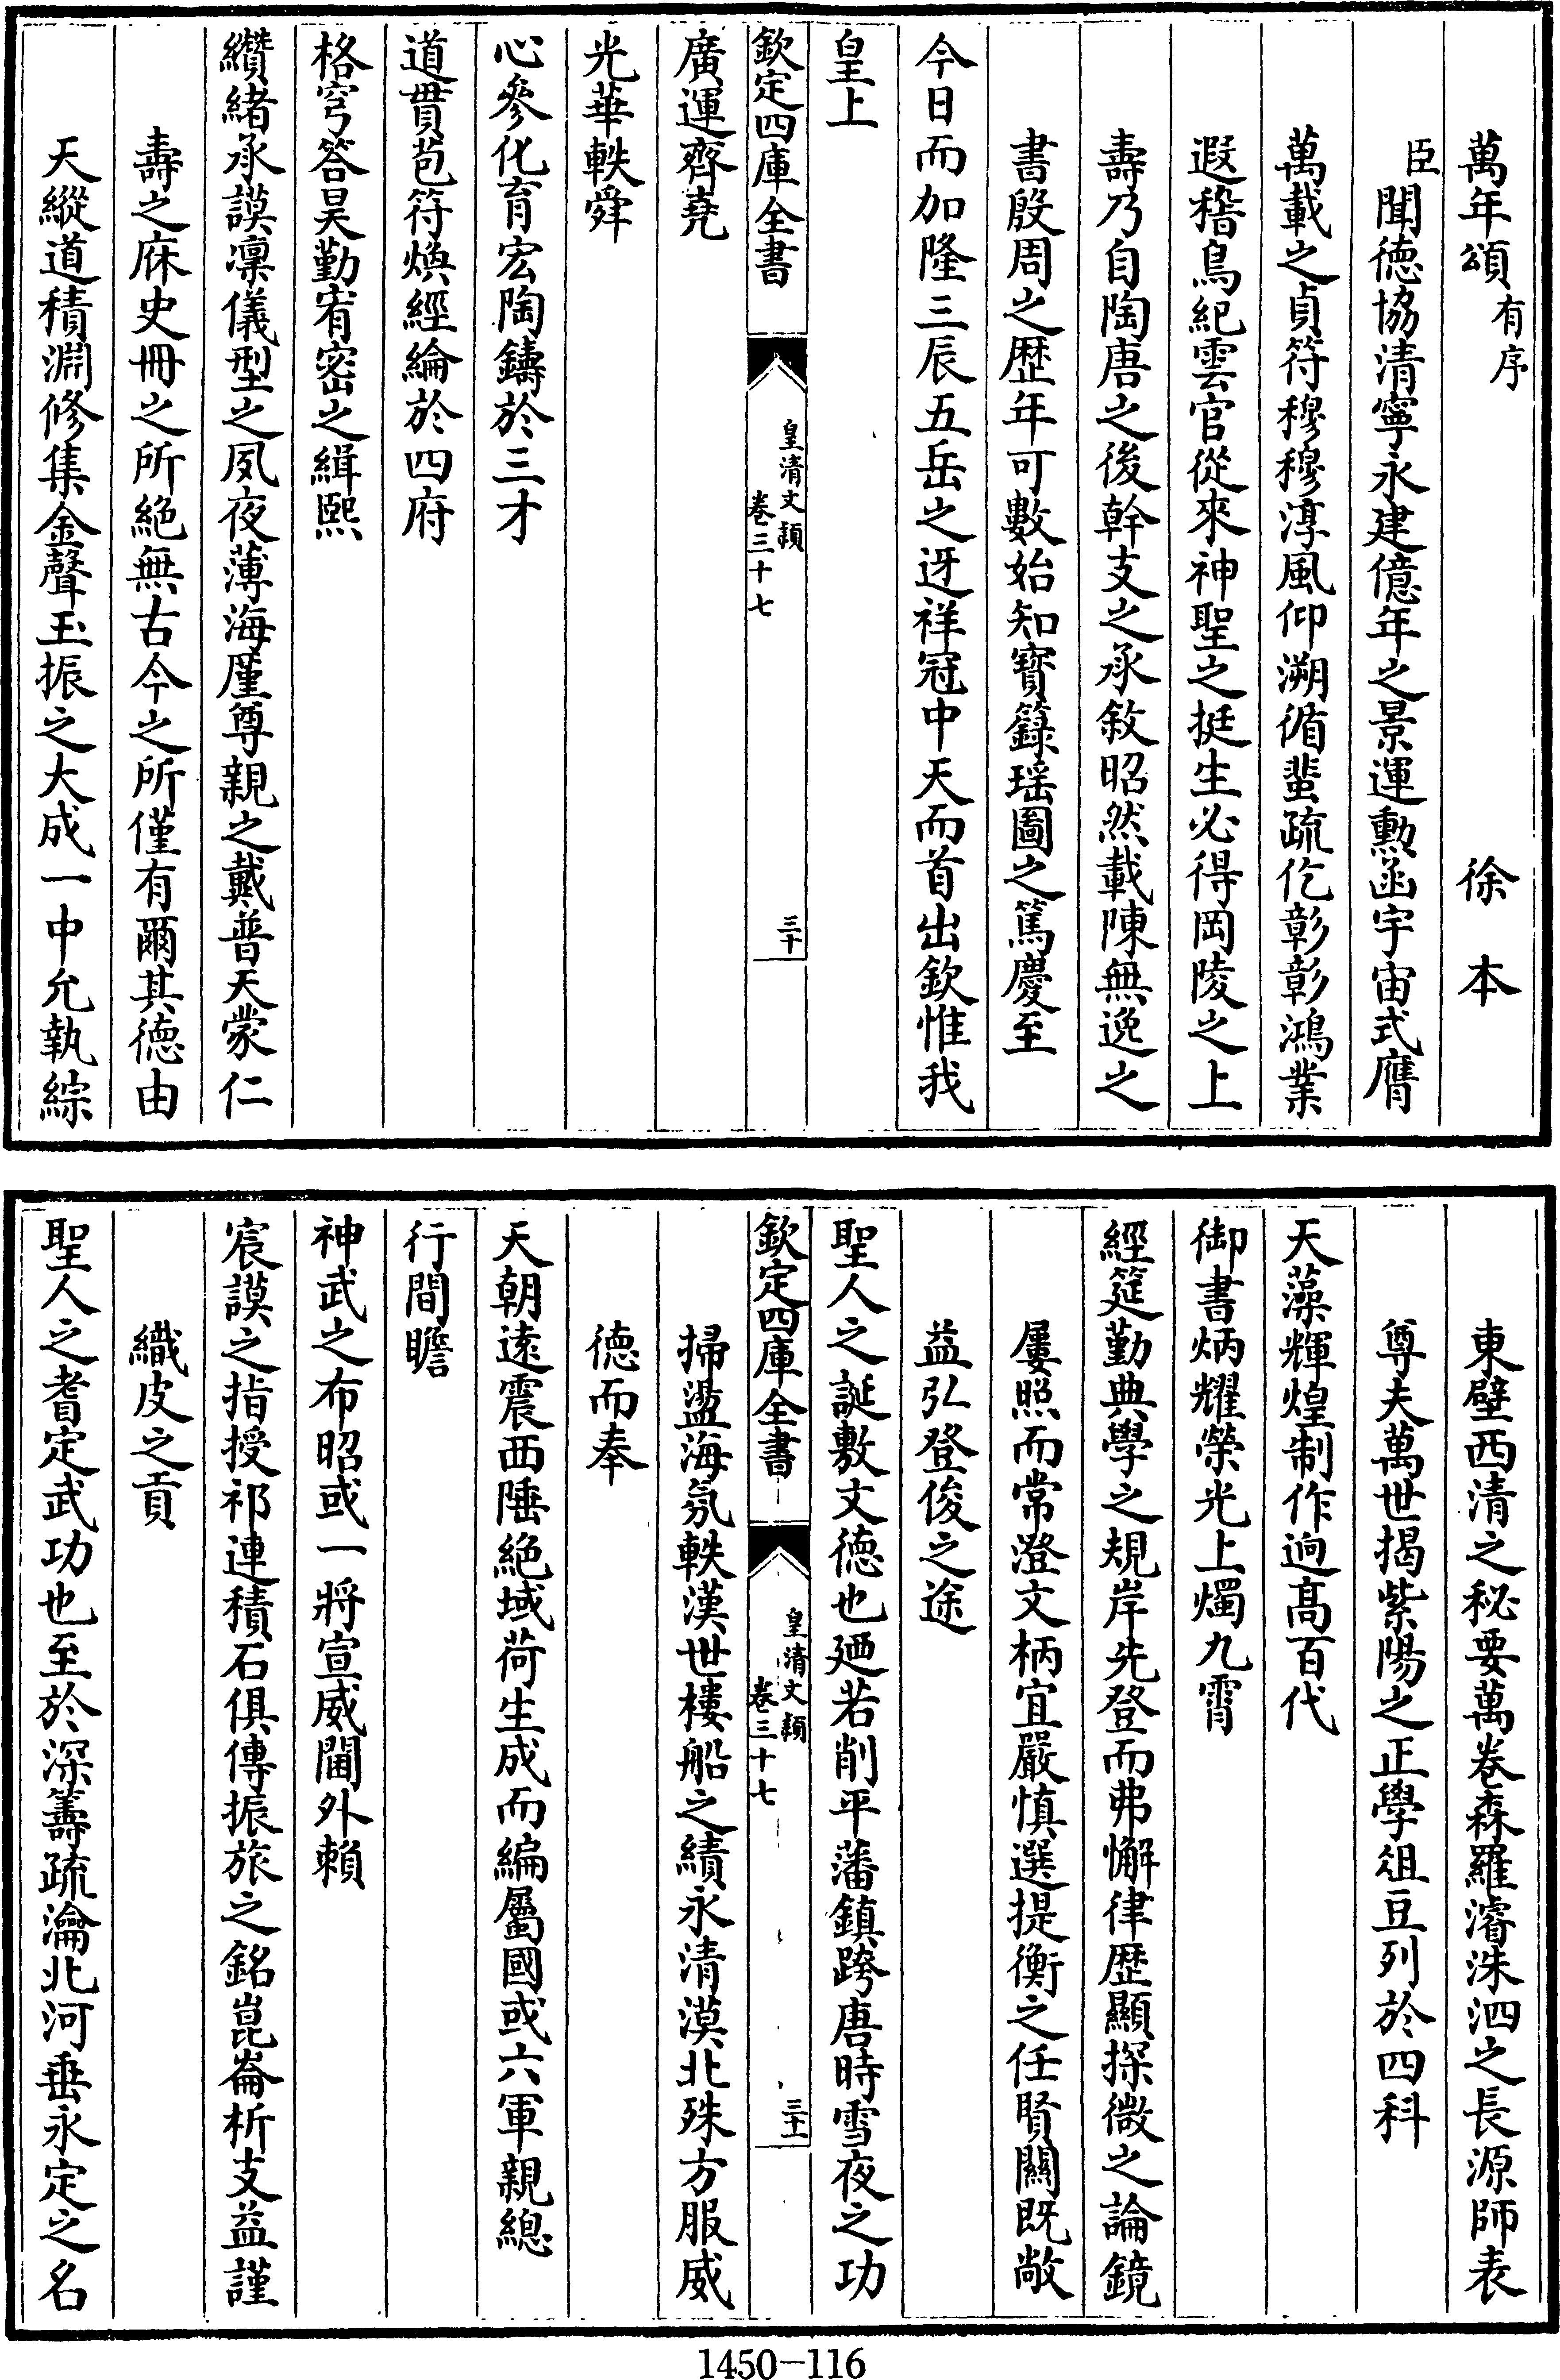 萬年頌有序 徐本
臣聞德協清寧永建億年之景運勲函宇宙式膺
萬載之貞符穆穆淳風仰溯循蜚疏仡彰彰鴻業
遐稽鳥紀雲官從來神聖之挺生必得岡陵之上
壽乃自陶唐之後幹支之承敘昭然載陳無逸之
書殷周之歴年可數始知寳籙瑶圖之篤慶至
今日而加隆三辰五岳之迓祥冠中天而首出欽惟我
皇上
欽定四庫全書 皇清文穎卷三十七 三十
廣運齊堯
光華軼舜
心參化育宏陶鑄於三才
道貫苞符煥經綸於四府
格穹答昊勤宥密之緝熙
纘緒承謨凜儀型之夙夜薄海厪尊親之戴普天蒙仁
壽之庥史冊之所絶無古今之所僅有爾其德由
天縱道積淵修集金聲玉振之大成一中允執綜
東壁西清之秘要萬卷森羅濬洙泗之長源師表
尊夫萬世揭紫陽之正學俎豆列於四科
天藻輝煌制作逈髙百代
御書炳耀榮光上燭九霄
經筵勤典學之規岸先登而弗懈律歴顯探微之論鏡
屢照而常澄文柄宜嚴慎選提衡之任賢關既敞
益弘登俊之途
聖人之誕敷文德也廼若削平藩鎮跨唐時雪夜之功
欽定四庫全書 皇清文穎卷三十七 三十一
掃盪海氛軼漢世樓船之績永清漠北殊方服威
德而奉
天朝逺震西陲絶域荷生成而編屬國或六軍親總
行間瞻
神武之布昭或一將宣威閫外頼
宸謨之指授祁連積石俱傳振旅之銘崑崙析支益謹
織皮之貢
聖人之耆定武功也至於深籌疏瀹北河垂永定之名
1450-116